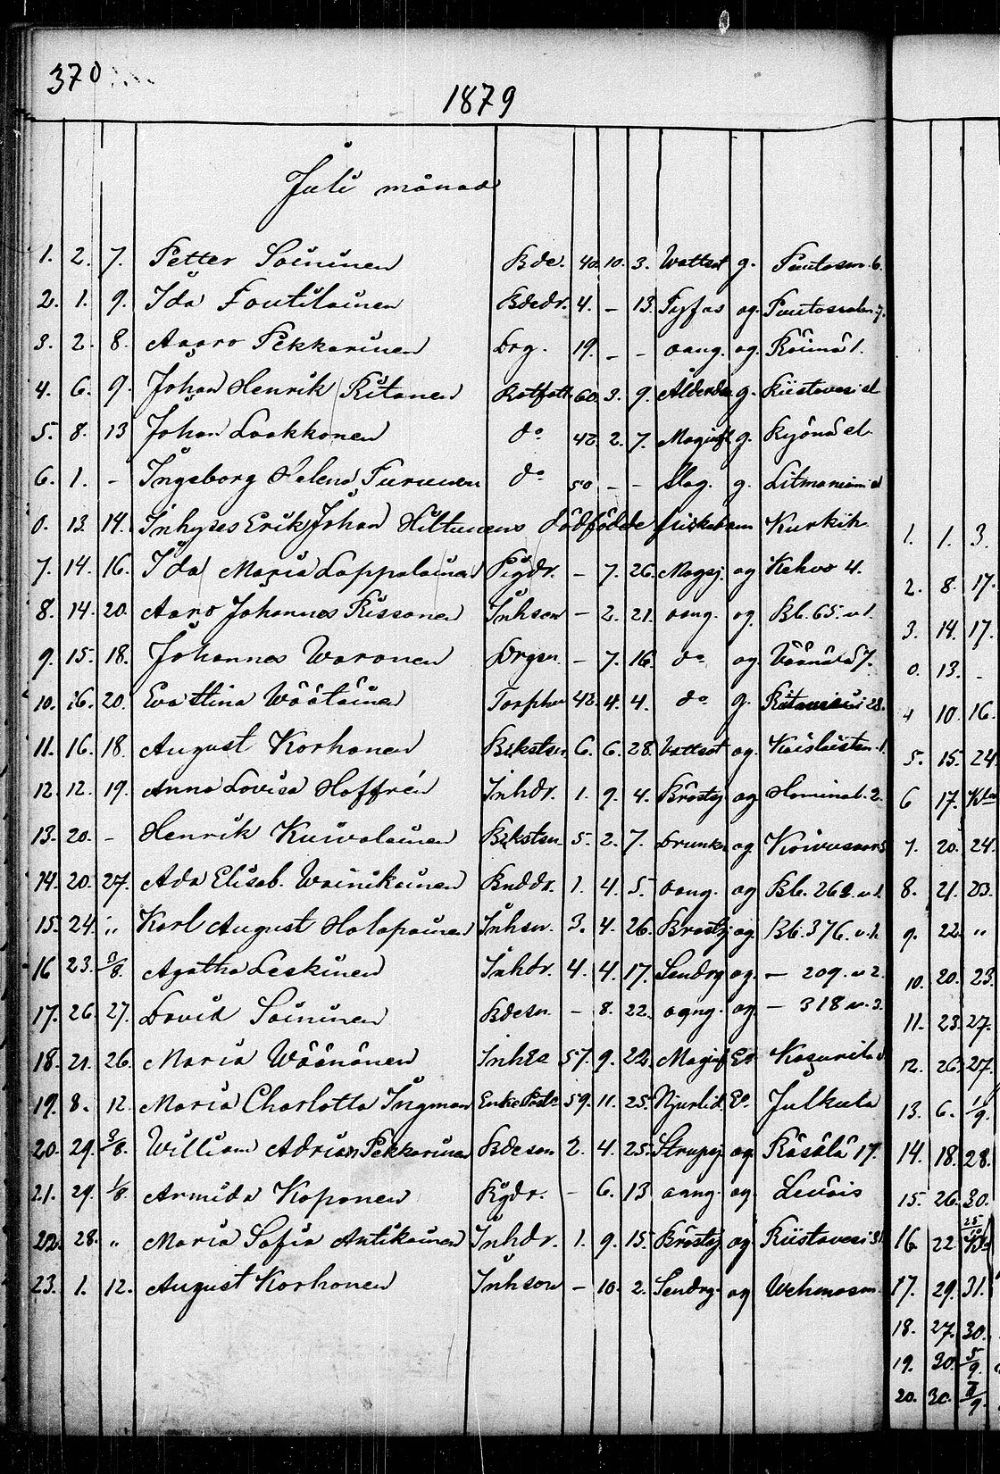 370
1879
Juli månad
1. 2. 7. Petter Soininen Bde. 40. 10. 3. Wattsot g. Puutossm. 6.
2. 1. 9. Ida Toutilainen Bdedr. 4. – 13. Tyfus og. Puutossalm. 7.
3. 2. 8. Aaaro Pekkarinen Drg. 19. – – oang. og. Räimä 1.
4. 6. 9. Johan Henrik Ritanen Rotfatt. 60. 3. 9. Ålderdr g. Kiistavesi
5. 8. 13 Johan Laakkonen do 42. 2. 7. Maginfl. g. Ryönä
6. 1. – Ingeborg Helena Turunen do 50 – – Slag. g. Litmaniemi
0. 13. 14. Inhyses Erik Johan Hiltunens dödfödde Kurkih.
7. 14. 16. Ida Maria Lappalainen Pigdr. – 7. 26. Magsj. og Kehvo 4.
8. 14. 20. Aaro Johannes Rissanen Inhson – 2. 21. oang. og Bb. 65. v 1.
9. 15. 18. Johannes Waronen Drgsn. – 7. 16. do og Väänälä 7.
10. 16. 20. Eva Stina Wäätäinen Torphu 42. 4. 4. do g. 28.
11. 16. 18. August Korhonen Bekstsn 6. 6. 28. Vattsot og Kaislasten. 1.
12. 12. 19. Anna Lovisa Hoffrén Inhdr. 1. 9. 4. Bröstsj og Haminal. 2.
13. 20. – Henrik Kuivalainen Bekstsn. 5. 2. 7. Drunkn og Koivusaari
14. 20. 27. Ada Elisab. Wainikainen Bnddr. 1. 4. 5. oang. og Bb. 262. v. 1.
15. 24. " Karl August Holopainen Inhsn. 3. 4. 26. Bröstsj og. Bb. 376. v. 1.
16 23. 3/8. Agatha Leskinen Inhdr. 4. 4. 17. Lendrg og. – 209. v 2.
17. 26. 27. David Soininen Bdesn. – 8. 22. oang. og – 318 v. 2.
18. 21. 26. Maria Wäänänen Inhea 57. 9. 22. Maginf E. Kasurila
19. 8. 12. Maria Charlotta Ingman Enkeprste 59. 11. 25. Njurlid. E. Julkula
20. 29. 3/8. William Adrian Pekkarinen Bdeson 2. 4. 25. Strupsj og Räsälä 17.
21. 29. 1/8. Armida Koponen Pigdr. – 6. 13 oang. og. Leväis
22. 28. " Maria Sofia Antikainen Inhdr. 1. 9. 15. Bröstsj og Kiistavesi 31.
23. 1. 12. August Korhonen Inhson – 10. 2. Lendrg. og Wehmasm.
1. 1. 3.
2. 8. 17.
3. 14. 17.
0. 13. –
4 10. 16.
5. 15. 24.
6 17.
7. 20. 24.
8. 21. 23.
9. 22. "
10. 20. 23.
11. 23. 27.
12. 26. 27.
13. 6. 1/9.
14. 18. 28.
15. 26. 30.
16 22.
17. 29. 31.
18. 27. 30.
19. 30. 5/9.
20. 30. 7/9.